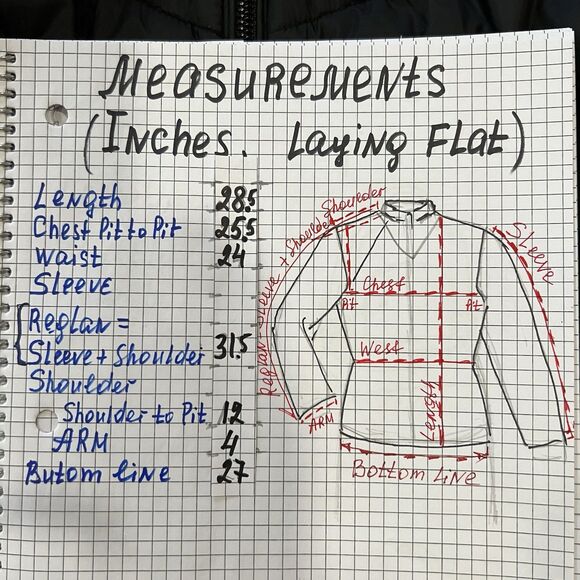 Measurements
(Inches. Laying Flat)
Length 28.5
Chest Pit to Pit 25.5
Waist 24
Sleeve
Reglan =
Sleeve + Shoulder 31.5
Shoulder
Shoulder to Pit 12
ARM 4
Butom line 27
Reglan = Sleeve + Shoulder
Shoulder
Sleeve
Chest
Pit
Pit
West
Length
ARM
Bottom Line